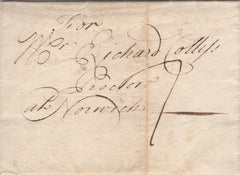 For
Mr Richard Collyss
Procter
at Norwich